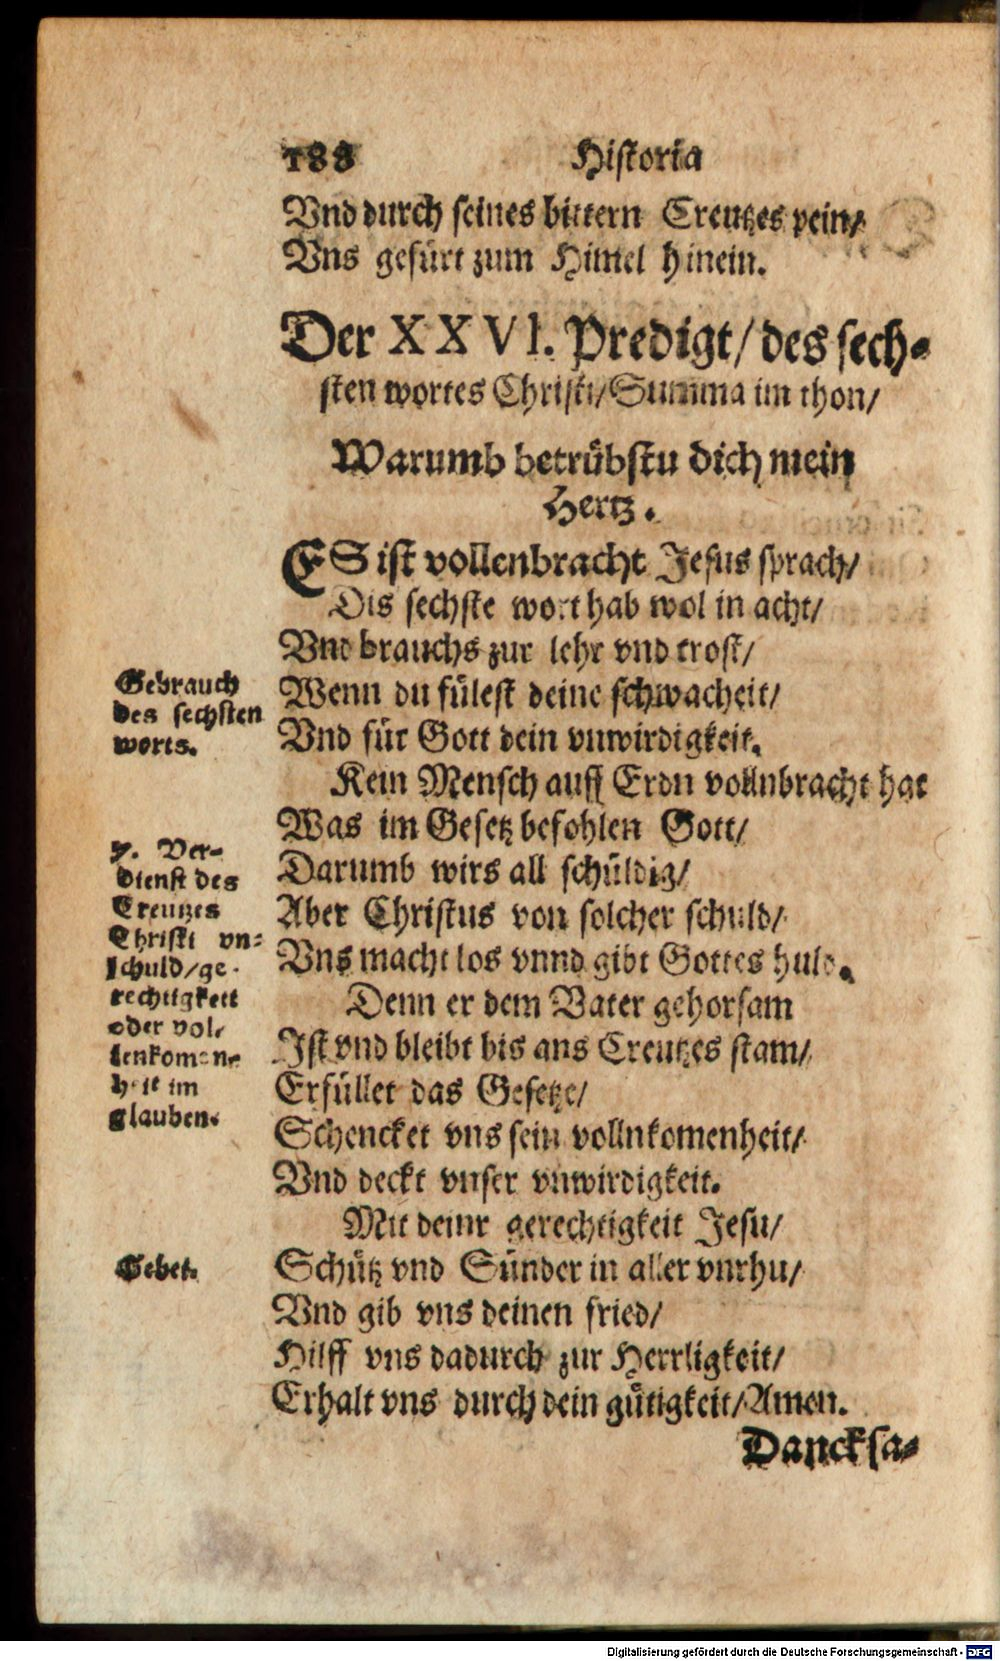 188 Historia
Vnd durch seines bittern Creutzes pein/
Vns gefürt zum Himel hinein.
Der XXVI. Predigt/ des sech-
sten wortes Christi/ Summa im thon/
Warumb betrübstu dich mein
Hertz.
ES ist vollenbracht Jesus sprach/
Dis sechste wort hab wol in acht/
Vnd brauchs zur lehr vnd trost/
Gebrauch
des sechsten
worts.
Wenn du fülest deine schwacheit/
Vnd für Gott dein vnwirdigkeit.
Kein Mensch auff Erdn vollnbracht hat
Was im Gesetz befohlen Gott/
7. Ver-
dienst des
Creutzes
Christi vn-
schuld/ge-
rechtigkeit
oder vol-
lenkomen-
heit im
glauben.
Darumb wirs all schüldig/
Aber Christus von solcher schuld/
Vns macht los vnnd gibt Gottes huld.
Denn er dem Vater gehorsam
Ist vnd bleibt bis ans Creutzes stam/
Erfüllet das Gesetze/
Schencket vns sein vollnkomenheit/
Vnd deckt vnser vnwirdigkeit.
Mit deinr gerechtigkeit Jesu/
Gebet.
Schütz vnd Sünder in aller vnrhu/
Vnd gib vns deinen fried/
Hilff vns dadurch zur Herrligkeit/
Erhalt vns durch dein gütigkeit/ Amen.
Dancksa-
Digitalisierung gefördert durch die Deutsche Forschungsgemeinschaft - DFG